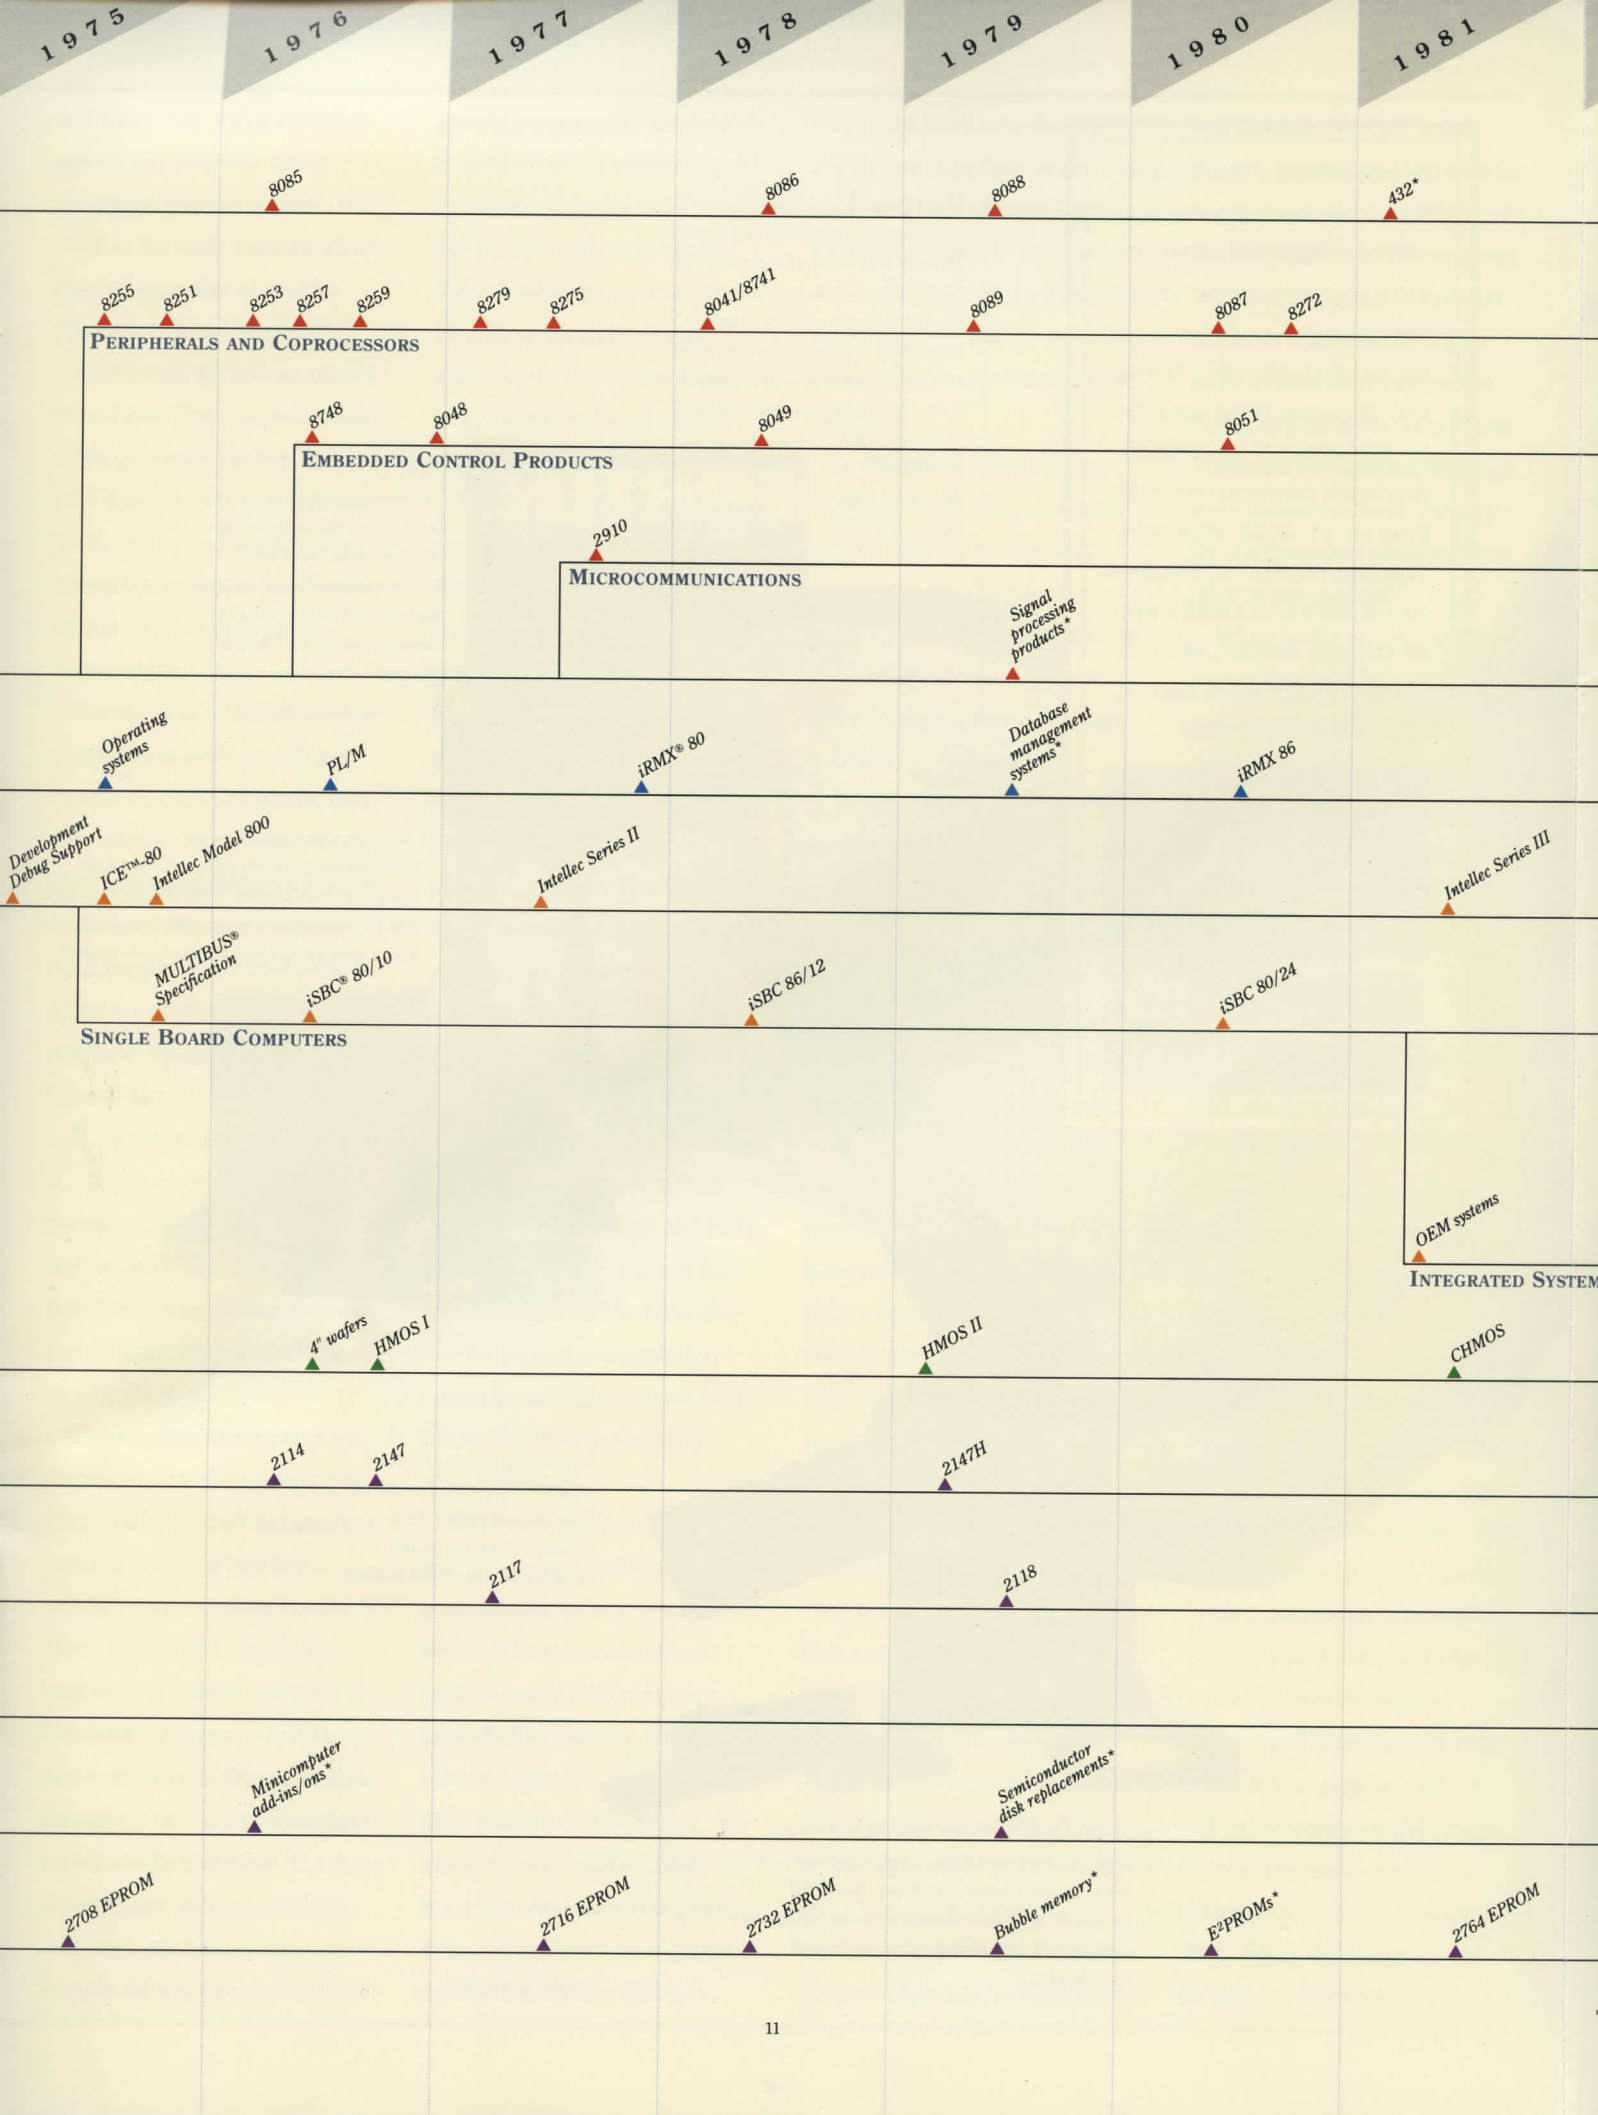 1975
1976
1977
1978
1979
1980
1981
8085
8086
8088
432*
8255
8251
8253
8257
8259
8279
8275
8041/8741
8089
8087
8272
PERIPHERALS AND COPROCESSORS
8748
8048
8049
8051
EMBEDDED CONTROL PRODUCTS
2910
MICROCOMMUNICATIONS
Signal
processing
products*
Operating
systems
PL/M
iRMX® 80
Database
management
systems*
iRMX 86
Development
Debug Support
ICE™-80
Intellec Model 800
Intellec Series II
Intellec Series III
MULTIBUS®
Specification
iSBC® 80/10
iSBC 86/12
iSBC 80/24
SINGLE BOARD COMPUTERS
OEM systems
INTEGRATED SYSTEM
4" wafers
HMOS I
HMOS II
CHMOS
2114
2147
2147H
2117
2118
Minicomputer
add-ins/ons*
Semiconductor
disk replacements*
2708 EPROM
2716 EPROM
2732 EPROM
Bubble memory*
E²PROMs*
2764 EPROM
11